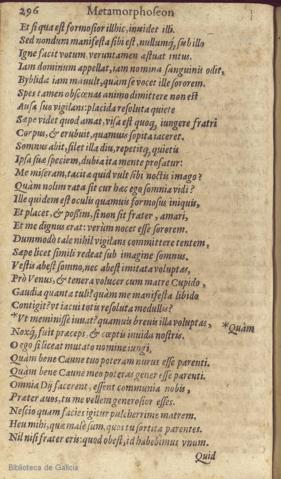 296 Metamorphoseon
Et si qua est formosior illhic, inuidet illi.
Sed nondum manifesta sibi est, nullumq́; sub illo
Igne facit votum, veruntamen æstuat intus.
Iam dominum appellat, iam nomina sanguinis odit,
Byblida iam mauult, quàm se vocet ille sororem.
Spes tamen obscœnas animo dimittere non est
Ausa suo vigilans: placida resoluta quiete
Sæpe videt quod amat, visa est quoq; iungere fratri
Corpus, & erubuit, quamuis sopita iaceret.
Somnus abit, silet illa diu, repetitq; quietis
Ipsa suæ speciem, dubia ita mente profatur:
Me miseram, tacitæ quid vult sibi noctis imago?
Quàm nolim rata sit cur hæc ego somnia vidi?
Ille quidem est oculis quamuis formosus iniquis,
Et placet, & possim, si non sit frater, amari,
Et me dignus erat: verùm nocet esse sororem.
Dummodo tale nihil vigilans committere tentem,
Sæpe licet simili redeat sub imagine somnus.
Vestis abest somno, nec abest imitata voluptas,
Prò Venus, & tenera volucer cum matre Cupido,
Gaudia quanta tuli! quàm me manifesta libido
Contigit? vt iacui totis resoluta medullis?
*Vt meminisse iuuat? quamuis breuis illa voluptas, *Quàm
Noxq́; fuit præceps, & cœptis inuida nostris.
O ego si liceat mutato nomine iungi,
Quàm bene Caune tuo poteram nurus esse parenti.
Quàm bene Caune meo poteras gener esse parenti.
Omnia Dij facerent, essent communia nobis,
Præter auos, tu me vellem generosior esses.
Nescio quam facies igitur pulcherrime matrem.
Heu mihi, quæ malè sum, quos tu sortita parentes.
Nil nisi frater eris: quod obest, id habebimus vnum.
Quid
Biblioteca de Galicia